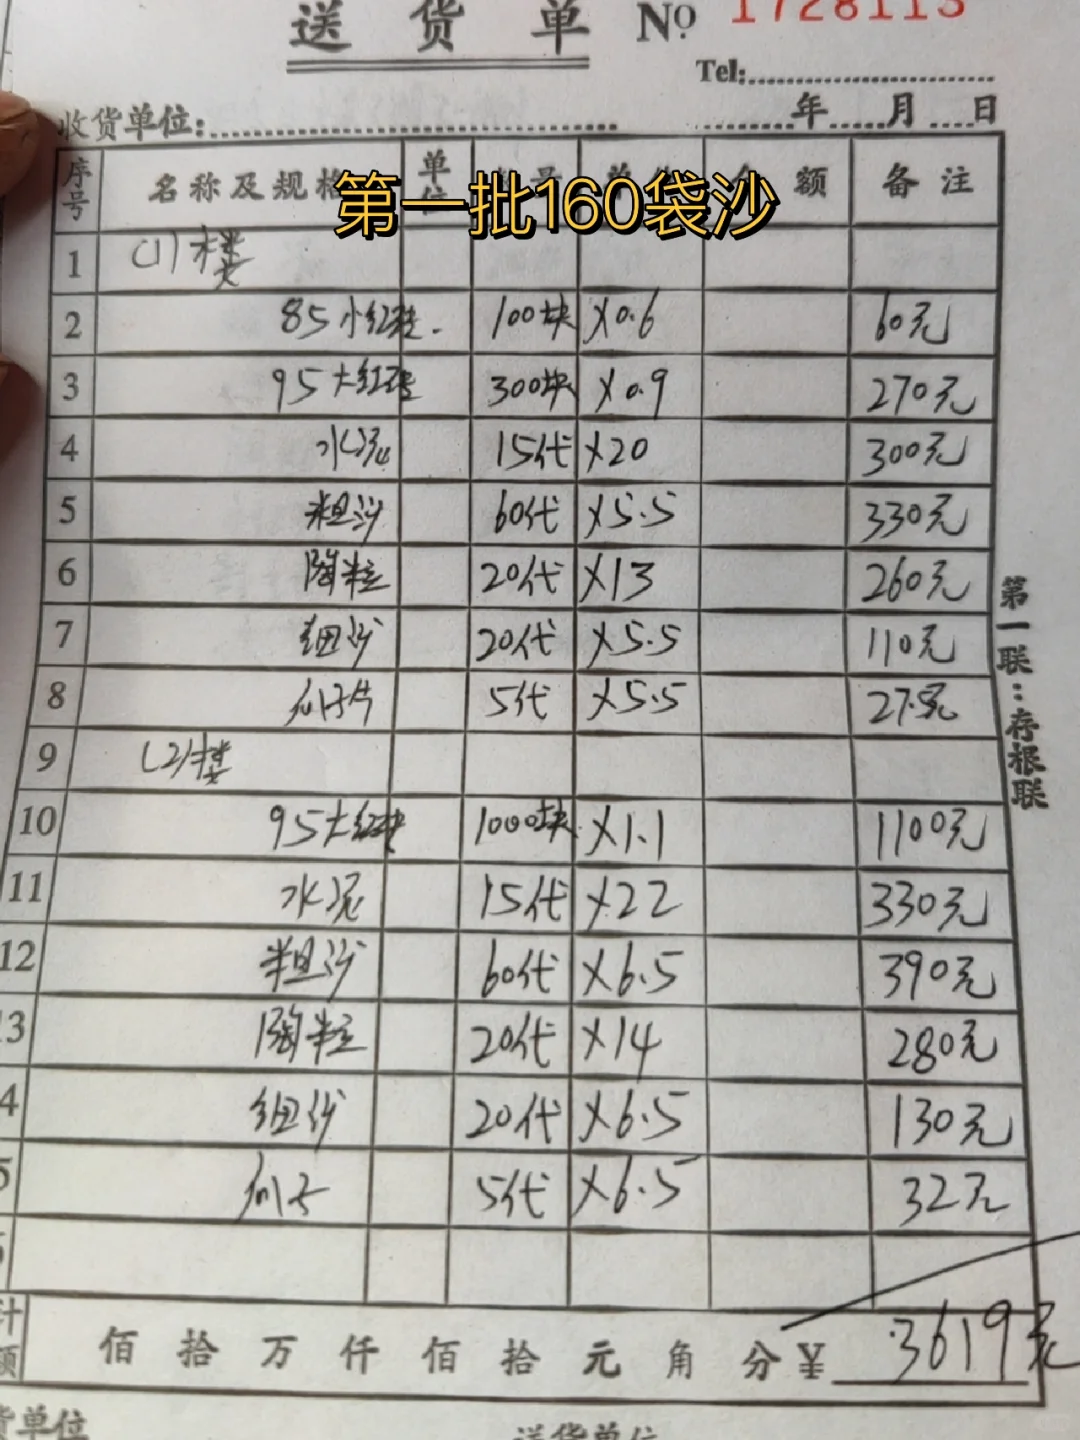 送货单 No 1728113
Tel:
收货单位: 年 月 日
序号 名称及规格 单位 额 备注
第一批160袋沙
1 (1)楼
2 85小红砖. 100块 ×0.6 60元
3 95大红砖 300块 ×0.9 270元
4 水泥 15代 ×20 300元
5 粗沙 60代 ×5.5 330元
6 陶粒 20代 ×13 260元
7 细沙 20代 ×5.5 110元
8 瓜子片 5代 ×5.5 27.5元
9 (2)楼
10 95大红块 1000块 ×1.1 1100元
11 水泥 15代 ×22 330元
12 粗沙 60代 ×6.5 390元
3 陶粒 20代 ×14 280元
4 细沙 20代 ×6.5 130元
5 瓜子 5代 ×6.5 32元
计 额 佰 拾 万 仟 佰 拾 元 角 分 ¥ 3619元
货单位 送货单位
第一联：存根联